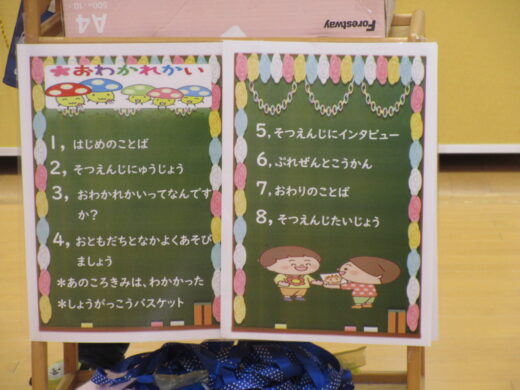 Forestway
A4
500×10
★おわかれかい
1, はじめのことば
2, そつえんじにゅうじょう
3, おわかれかいってなんです
か?
4, おともだちとなかよくあそび
ましょう
*あのころきみは、わかかった
*しょうがっこうバスケット
5, そつえんじにインタビュー
6, ぷれぜんとこうかん
7, おわりのことば
8, そつえんじたいじょう